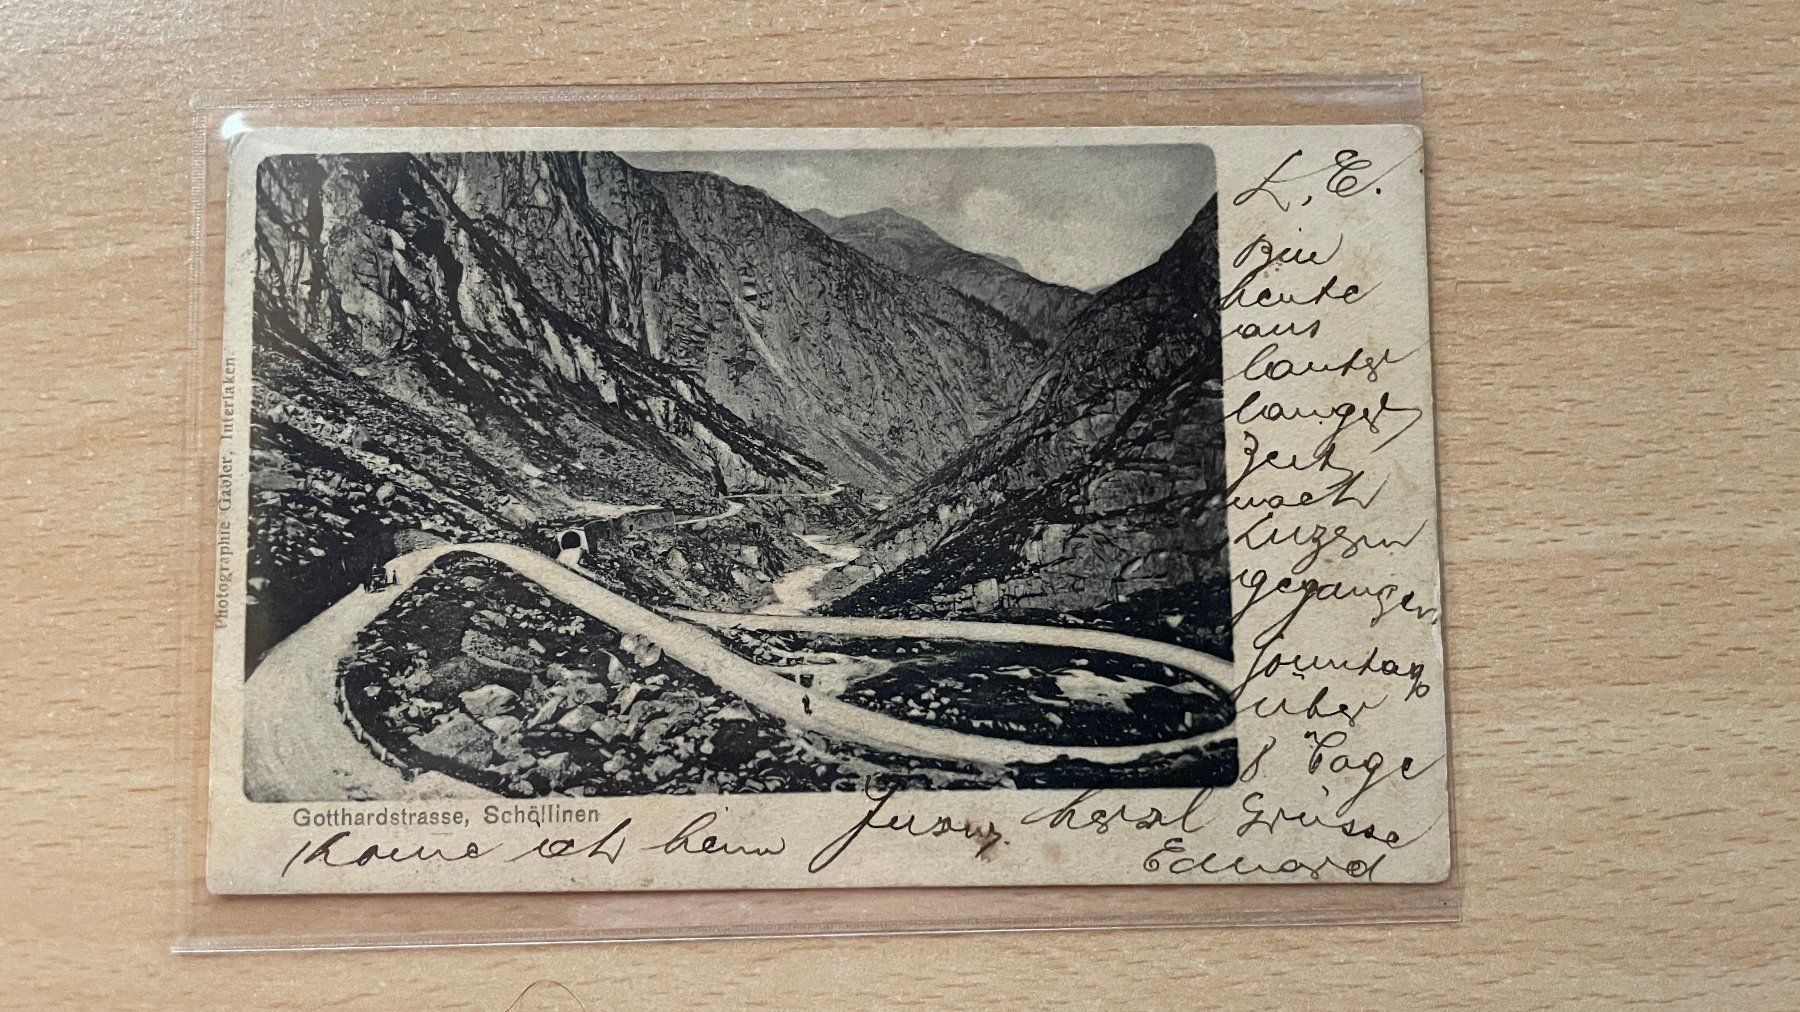 L. E.
Bin
heute
aus
lauter
langer
Zeit
nach
Luzern
gegangen.
Sonntag
über
8 Tage
Photographie Gabler, Interlaken.
Gotthardstrasse, Schöllinen
Kome ich heim herzl Grüsse
Eduard